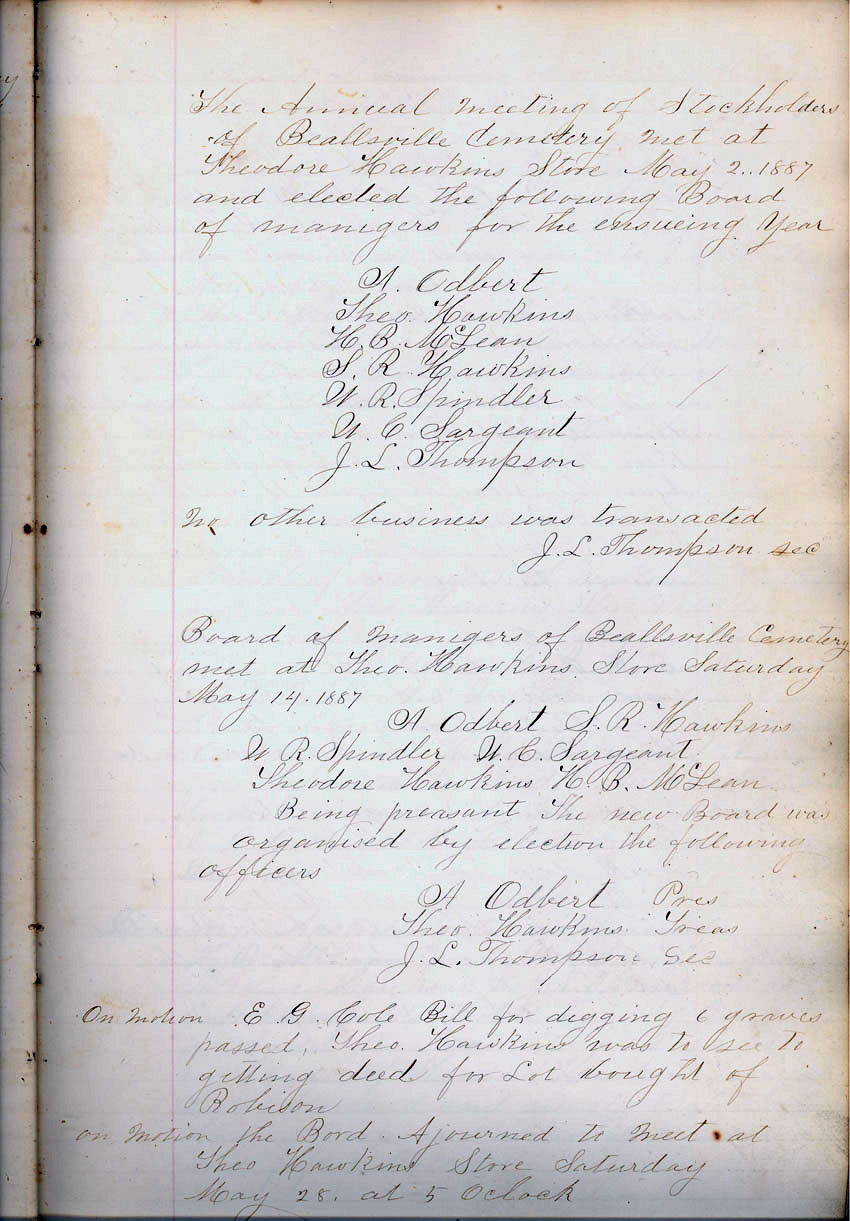 The Annual meeting of Stockholders
of Beallsville Cemetery met at
Theodore Hawkins Store May 2.. 1887
and elected the following Board
of manigers for the ensueing Year
A. Odbert
Theo. Hawkins
H. B. McLean
S. R. Hawkins
W. R. Spindler
W. C. Sargeant
J. L. Thompson
No other business was transacted
J. L. Thompson sec
Board of Manigers of Beallsville Cemetery
met at Theo. Hawkins Store Saturday
May 14. 1887
A Odbert S. R. Hawkins
W R. Spindler W. C. Sargeant
Theodore Hawkins H. B. McLean
Being preasant The new Board was
organised by election the following
officers
A Odbert Pres
Theo. Hawkins Treas
J. L. Thompson Sec
On Motion E. G. Cole Bill for digging 6 graves
passed, Theo. Hawkins was to see to
getting deed for Lot bought of
Robison
on Motion the Bord Ajourned to meet at
Theo Hawkins Store Saturday
May 28. at 5 Oclock